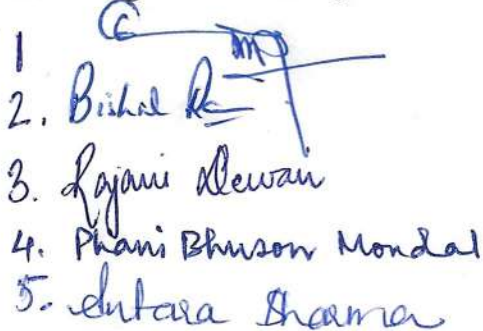 1
2. Bishal
3. Rajani Dewan
4. Phani Bhuson Mondal
5. Antara Sharma